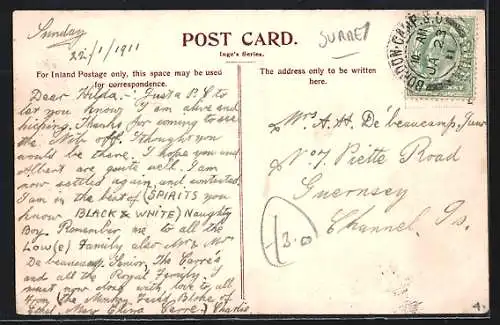 Sunday
22/1/1911
POST CARD.
Inge's Series.
SURREY
BORDON-CAMP. S.O.
JA 23
11
For Inland Postage only, this space may be used
for correspondence.
The address only to be written
here.
Dear Hilda. Just a P.C. to
let you know I am alive and
kicking. Thanks for coming to see
the Mite off. I thought you
would be there. I hope you and
Albert are quite well. I am
now settled again and contented
I am in the best of (SPIRITS you
know BLACK & WHITE) Naughty
Boy. Remember me to all the
Low (E) Family also Mr & Mrs
De beaucamp Senior, The Carré's
and all the Royal Family. I
must now along with love to all
From (the Monkey Faced Bloke of
Ethel May Elina Carré) Charlie
Mrs. A. H. De beaucamp, Junr
No 7, Piette Road
Guernsey
Channel Is.
3.0
4.